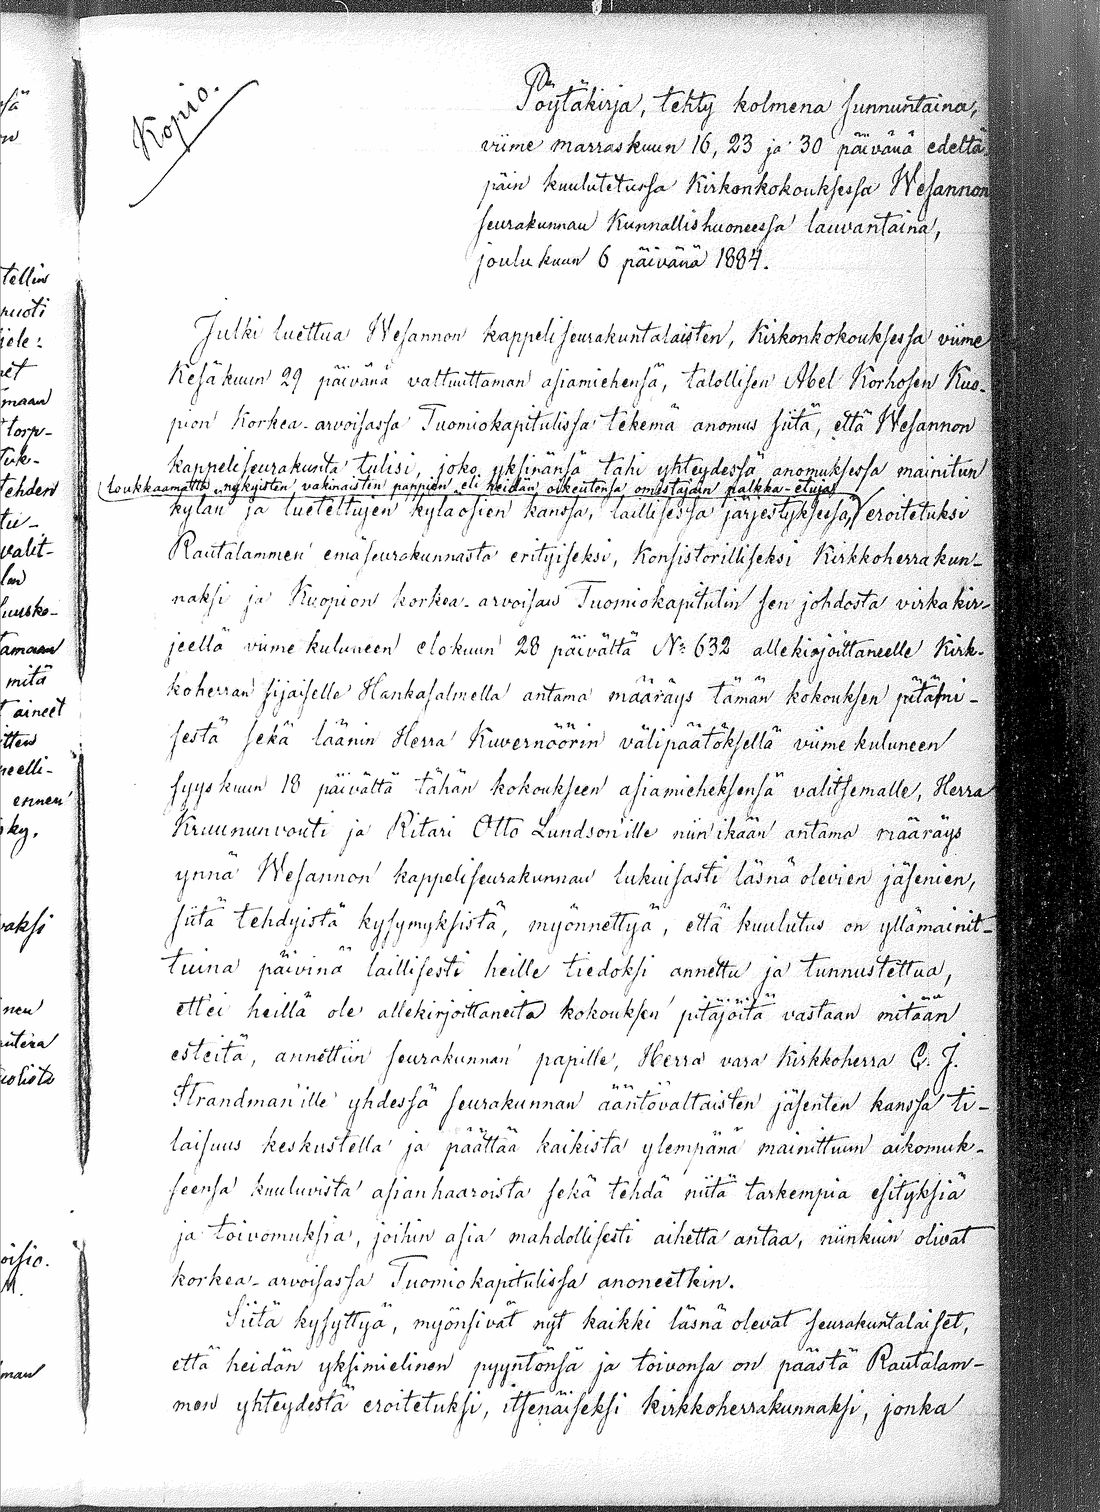 Kopio.
Pöytäkirja, tehty kolmena sunnuntaina,
viime marraskuun 16, 23 ja 30 päivänä edeltä-
päin kuulutetussa Kirkonkokouksessa Wesannon
seurakunnan Kunnallishuoneessa lauvantaina,
joulukuun 6 päivänä 1884.
Julki luettua Wesannon kappeliseurakuntalaisten, Kirkonkokouksessa viime
Kesäkuun 29 päivänä valtuuttaman asiamiehensä, talollisen Abel Korhosen Kuo-
pion Korkea-arvoisassa Tuomiokapitulissa tekemä anomus siitä, että Wesannon
kappeliseurakunta tulisi, joko yksinänsä tahi yhteydessä anomuksessa mainitun
(loukkaamatta nykyisten vakinaisten pappien eli heidän oikeutensa omistajain palkka-etuja)
kylän ja lueteltujen kyläosien kanssa, laillisessa järjestyksessä, eroitetuksi
Rautalammen emäseurakunnasta erityiseksi, Konsistorilliseksi Kirkkoherrakun-
naksi ja Kuopion korkea-arvoisan Tuomiokapitulin sen johdosta virkakir-
jeellä viime kuluneen elokuun 28 päivältä No 632 allekirjoittaneelle Kirk-
koherran sijaiselle Hankasalmella antama määräys tämän kokouksen pitämi-
sestä sekä läänin Herra Kuvernöörin välipäätöksellä viime kuluneen
syyskuun 18 päivältä tähän kokoukseen asiamieheksensä valitsemalle, Herra
Kruununvouti ja Ritari Otto Lundson'ille niin ikään antama määräys
ynnä Wesannon kappeliseurakunnan lukuisasti läsnä olevien jäsenien,
siitä tehdyistä kysymyksistä, myönnettyä, että kuulutus on yllämainit-
tuina päivinä laillisesti heille tiedoksi annettu ja tunnustettua,
ett'ei heillä ole allekirjoittaneita kokouksen pitäjöitä vastaan mitään
esteitä, annettiin seurakunnan papille, Herra vara Kirkkoherra C. J.
Strandman'ille yhdessä seurakunnan ääntövaltaisten jäsenten kanssa ti-
laisuus keskustella ja päättää kaikista ylempänä mainittuun aikomuk-
seensa kuuluvista asianhaaroista sekä tehdä niitä tarkempia esityksiä
ja toivomuksia, joihin asia mahdollisesti aihetta antaa, niinkuin olivat
korkea-arvoisassa Tuomiokapitulissa anoneetkin.
Siitä kysyttyä, myönsivät nyt kaikki läsnä olevat seurakuntalaiset,
että heidän yksimielinen pyyntönsä ja toivonsa on päästä Rautalam-
men yhteydestä eroitetuksi, itsenäiseksi kirkkoherrakunnaksi, jonka